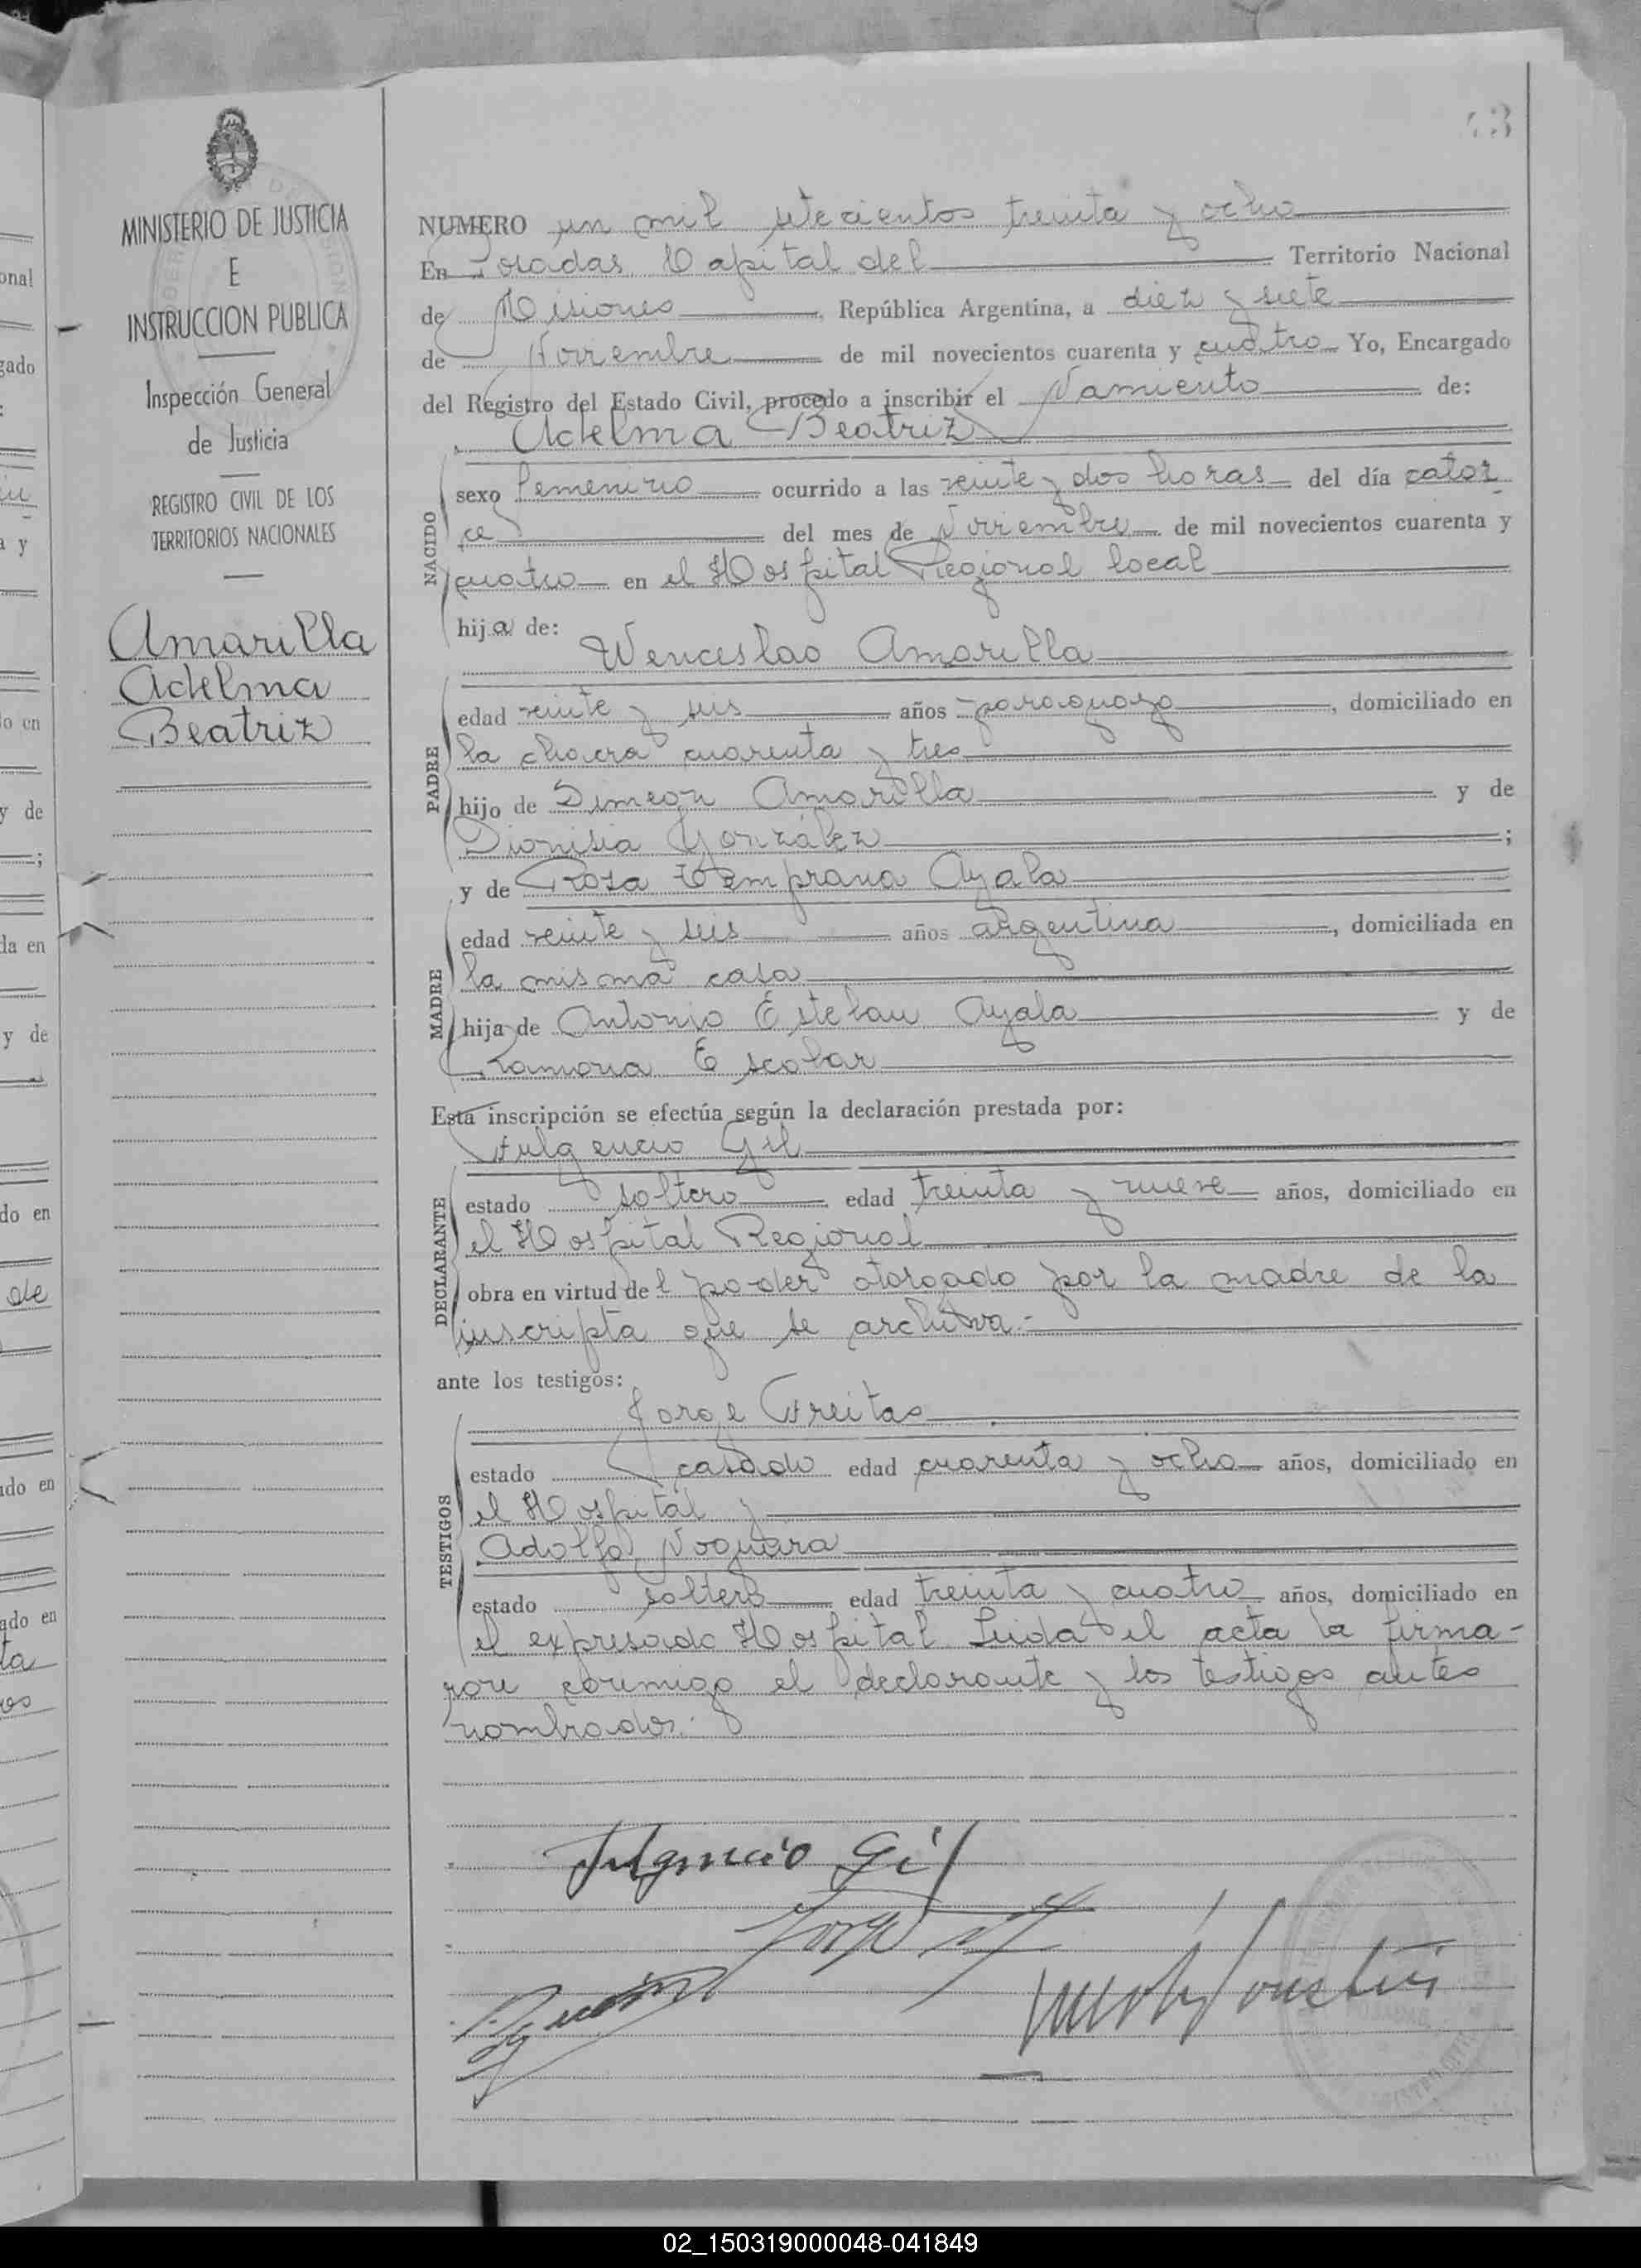 43
MINISTERIO DE JUSTICIA
E
INSTRUCCION PUBLICA
Inspección General
de Justicia
REGISTRO CIVIL DE LOS
TERRITORIOS NACIONALES
Amarilla
Adelma
Beatriz
NUMERO un mil setecientos treinta y ocho
En Posadas Capital del Territorio Nacional
de Misiones, República Argentina, a diez y siete
de Noviembre de mil novecientos cuarenta y cuatro Yo, Encargado
del Registro del Estado Civil, procedo a inscribir el Namiento de:
Adelma Beatriz
NACIDO
sexo femenino ocurrido a las veinte y dos horas del día cator
ce del mes de Noviembre de mil novecientos cuarenta y
cuatro en el Hospital Regional local
hija de:
Wenceslao Amarilla
PADRE
edad veinte y seis años paraguayo, domiciliado en
la chacra cuarenta y tres
hijo de Simeon Amarilla y de
Dionisia González;
y de Rosa Temprana Ayala
MADRE
edad veinte y seis años argentina, domiciliada en
la misma casa
hija de Antonio Esteban Ayala y de
Ramona Escobar
Esta inscripción se efectúa según la declaración prestada por:
Fulgencio Gil
DECLARANTE
estado soltero edad treinta y nueve años, domiciliado en
el Hospital Regional
obra en virtud del poder otorgado por la madre de la
inscripta que se archiva.-
ante los testigos:
Jorge Freitas
TESTIGOS
estado casado edad cuarenta y ocho años, domiciliado en
el Hospital y
Adolfo Noguera
estado soltero edad treinta y cuatro años, domiciliado en
el expresado Hospital. Leida el acta la firma-
ron conmigo el declarante y los testigos antes
nombrados.-
Fulgencio Gil
Jorge
02_150319000048-041849